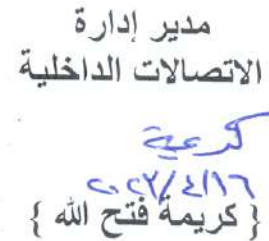 مدير إدارة
الاتصالات الداخلية
كريمة
٢٠٢٣/٤/١٦
{ كريمة فتح الله }